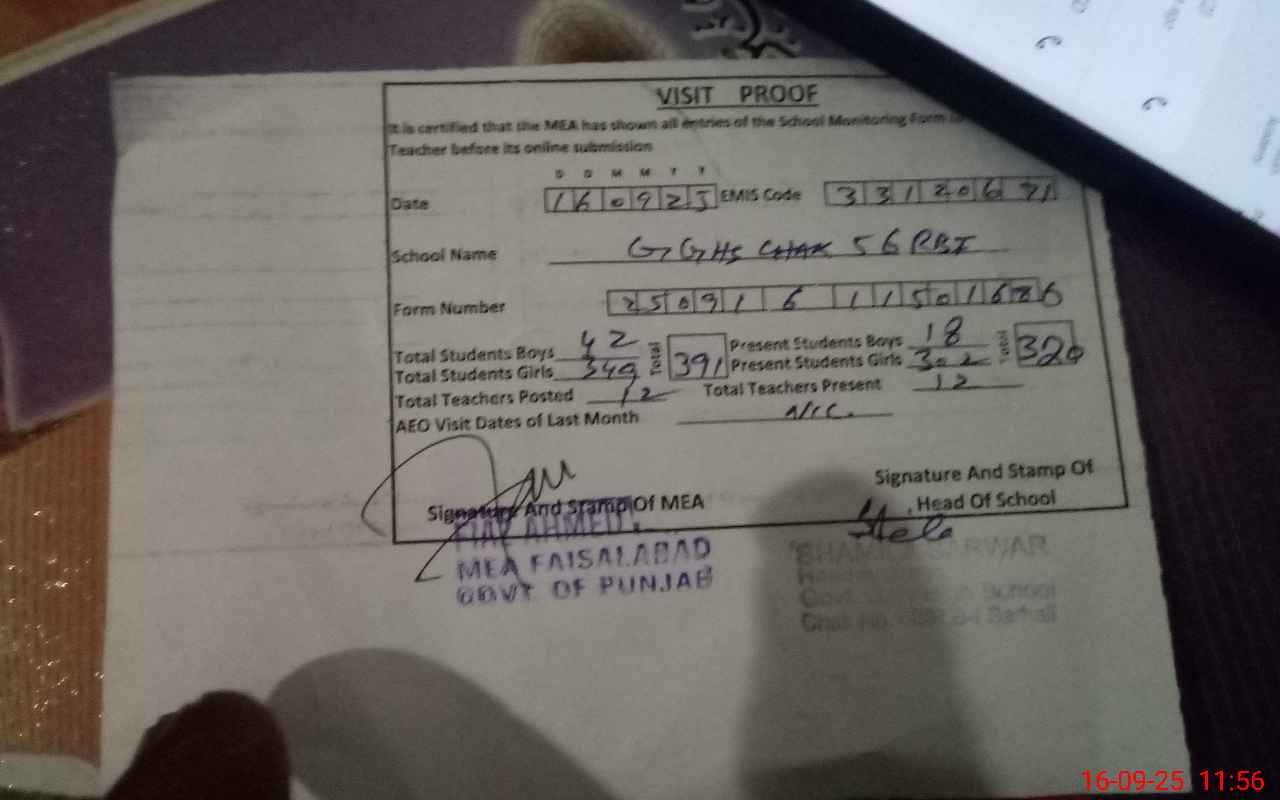 VISIT PROOF
It is certified that the MEA has shown all entries of the School Monitoring Form
Teacher before its online submission
D D M M Y Y
Date 160925 EMIS Code 33120671
School Name GGHS CHAK 56 RBI
Form Number
Total Students Boys 42 Total 391 Present Students Boys 18 Total 320
Total Students Girls 349 Present Students Girls 302
Total Teachers Posted 12 Total Teachers Present 12
AEO Visit Dates of Last Month
Signature And Stamp Of MEA
Signature And Stamp Of
Head Of School
AHMED
MEA FAISALABAD
GOVT OF PUNJAB
SARWAR
Govt. School
Chak No.
16-09-25 11:56